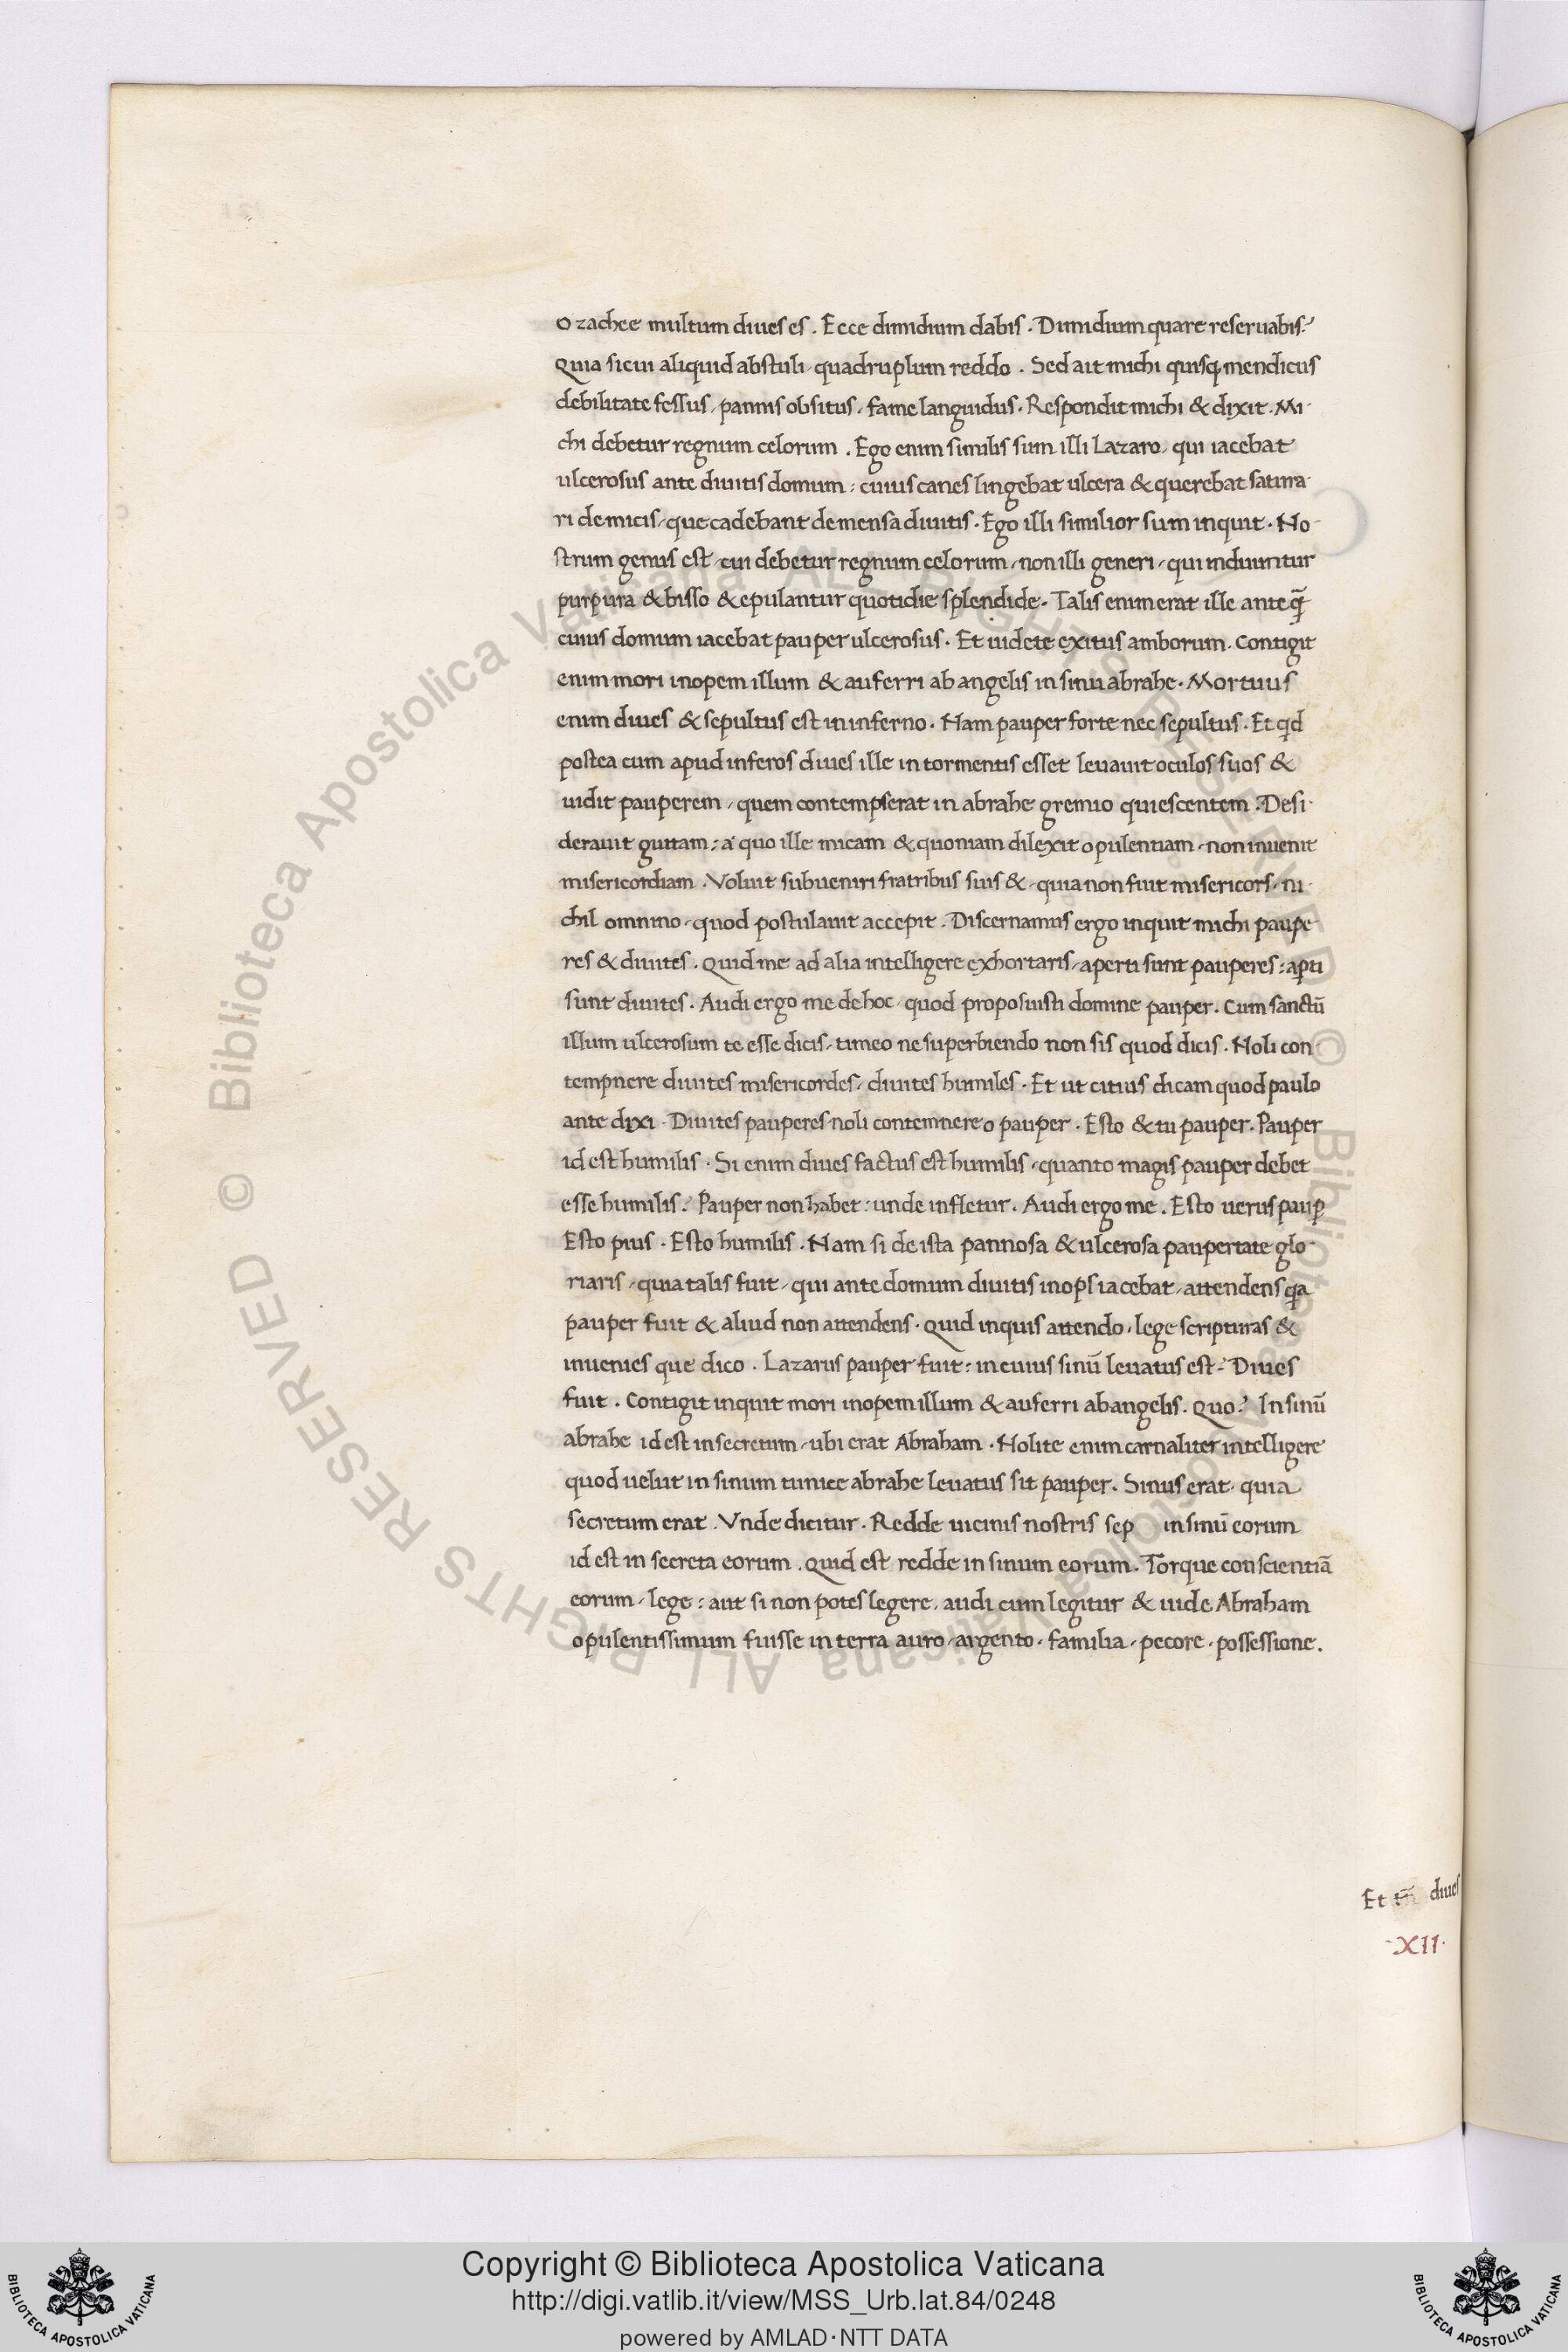 O zachee multum diues es . Ecce dimidium dabis . Dimidium quare reseruabis?
Quia si cui aliquid abstuli, quadruplum reddo . Sed ait michi quisq; mendicus
debilitate fessus, pannis obsitus, fame languidus . Respondit michi & dixit . Mi-
chi debetur regnum celorum . Ego enim similis sum illi Lazaro, qui iacebat
ulcerosus ante diuitis domum : cuius canes lingebat ulcera & querebat satura-
ri de micis, que cadebant de mensa diuitis . Ego illi similior sum inquit . No-
strum genus est, cui debetur regnum celorum, non illi generi, qui induuntur
purpura & bisso & epulantur quotidie splendide . Talis enim erat ille ante q̃
cuius domum iacebat pauper ulcerosus . Et uidete exitus amborum . Contigit
enim mori inopem illum & auferri ab angelis in sinu abrahe . Mortuus
enim diues & sepultus est in inferno . Nam pauper forte nec sepultus . Et qd
postea cum apud inferos diues ille in tormentis esset leuauit oculos suos &
uidit pauperem, quem contempserat in abrahe gremio quiescentem . Desi-
derauit guttam : a quo ille micam & quoniam dilexit opulentiam, non inuenit
misericordiam . Voluit subueniri fratribus suis &, quia non fuit misericors, ni-
chil omnino, quod postulauit accepit . Discernamus ergo inquit michi paupe-
res & diuites . Quid me ad alia intelligere exhortaris, aperti sunt pauperes : apti
sunt diuites . Audi ergo me de hoc, quod proposuisti domine pauper . Cum sanctū
illum ulcerosum te esse dicis, timeo ne superbiendo non sis quod dicis . Noli con-
tempnere diuites misericordes, diuites humiles . Et ut citius dicam quod paulo
ante dixi . Diuites pauperes noli contemnere o pauper . Esto & tu pauper . Pauper
id est humilis . Si enim diues factus est humilis, quanto magis pauper debet
esse humilis? Pauper non habet : unde infletur . Audi ergo me . Esto uerus paup̱
Esto pius . Esto humilis . Nam si de ista pannosa & ulcerosa paupertate glo-
riaris, quia talis fuit, qui ante domum diuitis inops iacebat, attendens qa
pauper fuit & aliud non attendens . Quid inquis attendo, lege scripturas &
inuenies que dico . Lazarus pauper fuit : in cuius sinū leuatus est? Diues
fuit . Contigit inquit mori inopem illum & auferri ab angelis . Quo? In sinū
abrahe id est in secretum, ubi erat Abraham . Nolite enim carnaliter intelligere
quod uelut in sinum tunice abrahe leuatus sit pauper . Sinus erat, quia
secretum erat . Vnde dicitur . Redde uicinis nostris sep in sinū eorum
id est in secreta eorum . Quid est redde in sinum eorum . Torque conscientiā
eorum, lege : aut si non potes legere, audi cum legitur & uide Abraham
opulentissimum fuisse in terra auro, argento, familia, pecore, possessione .
Et diues
XII
Copyright © Biblioteca Apostolica Vaticana
http://digi.vatlib.it/view/MSS_Urb.lat.84/0248
powered by AMLAD·NTT DATA
BIBLIOTECA APOSTOLICA VATICANA
BIBLIOTECA APOSTOLICA VATICANA
© Biblioteca Apostolica Vaticana ALL RIGHTS RESERVED
© Biblioteca Apostolica Vaticana ALL RIGHTS RESERVED